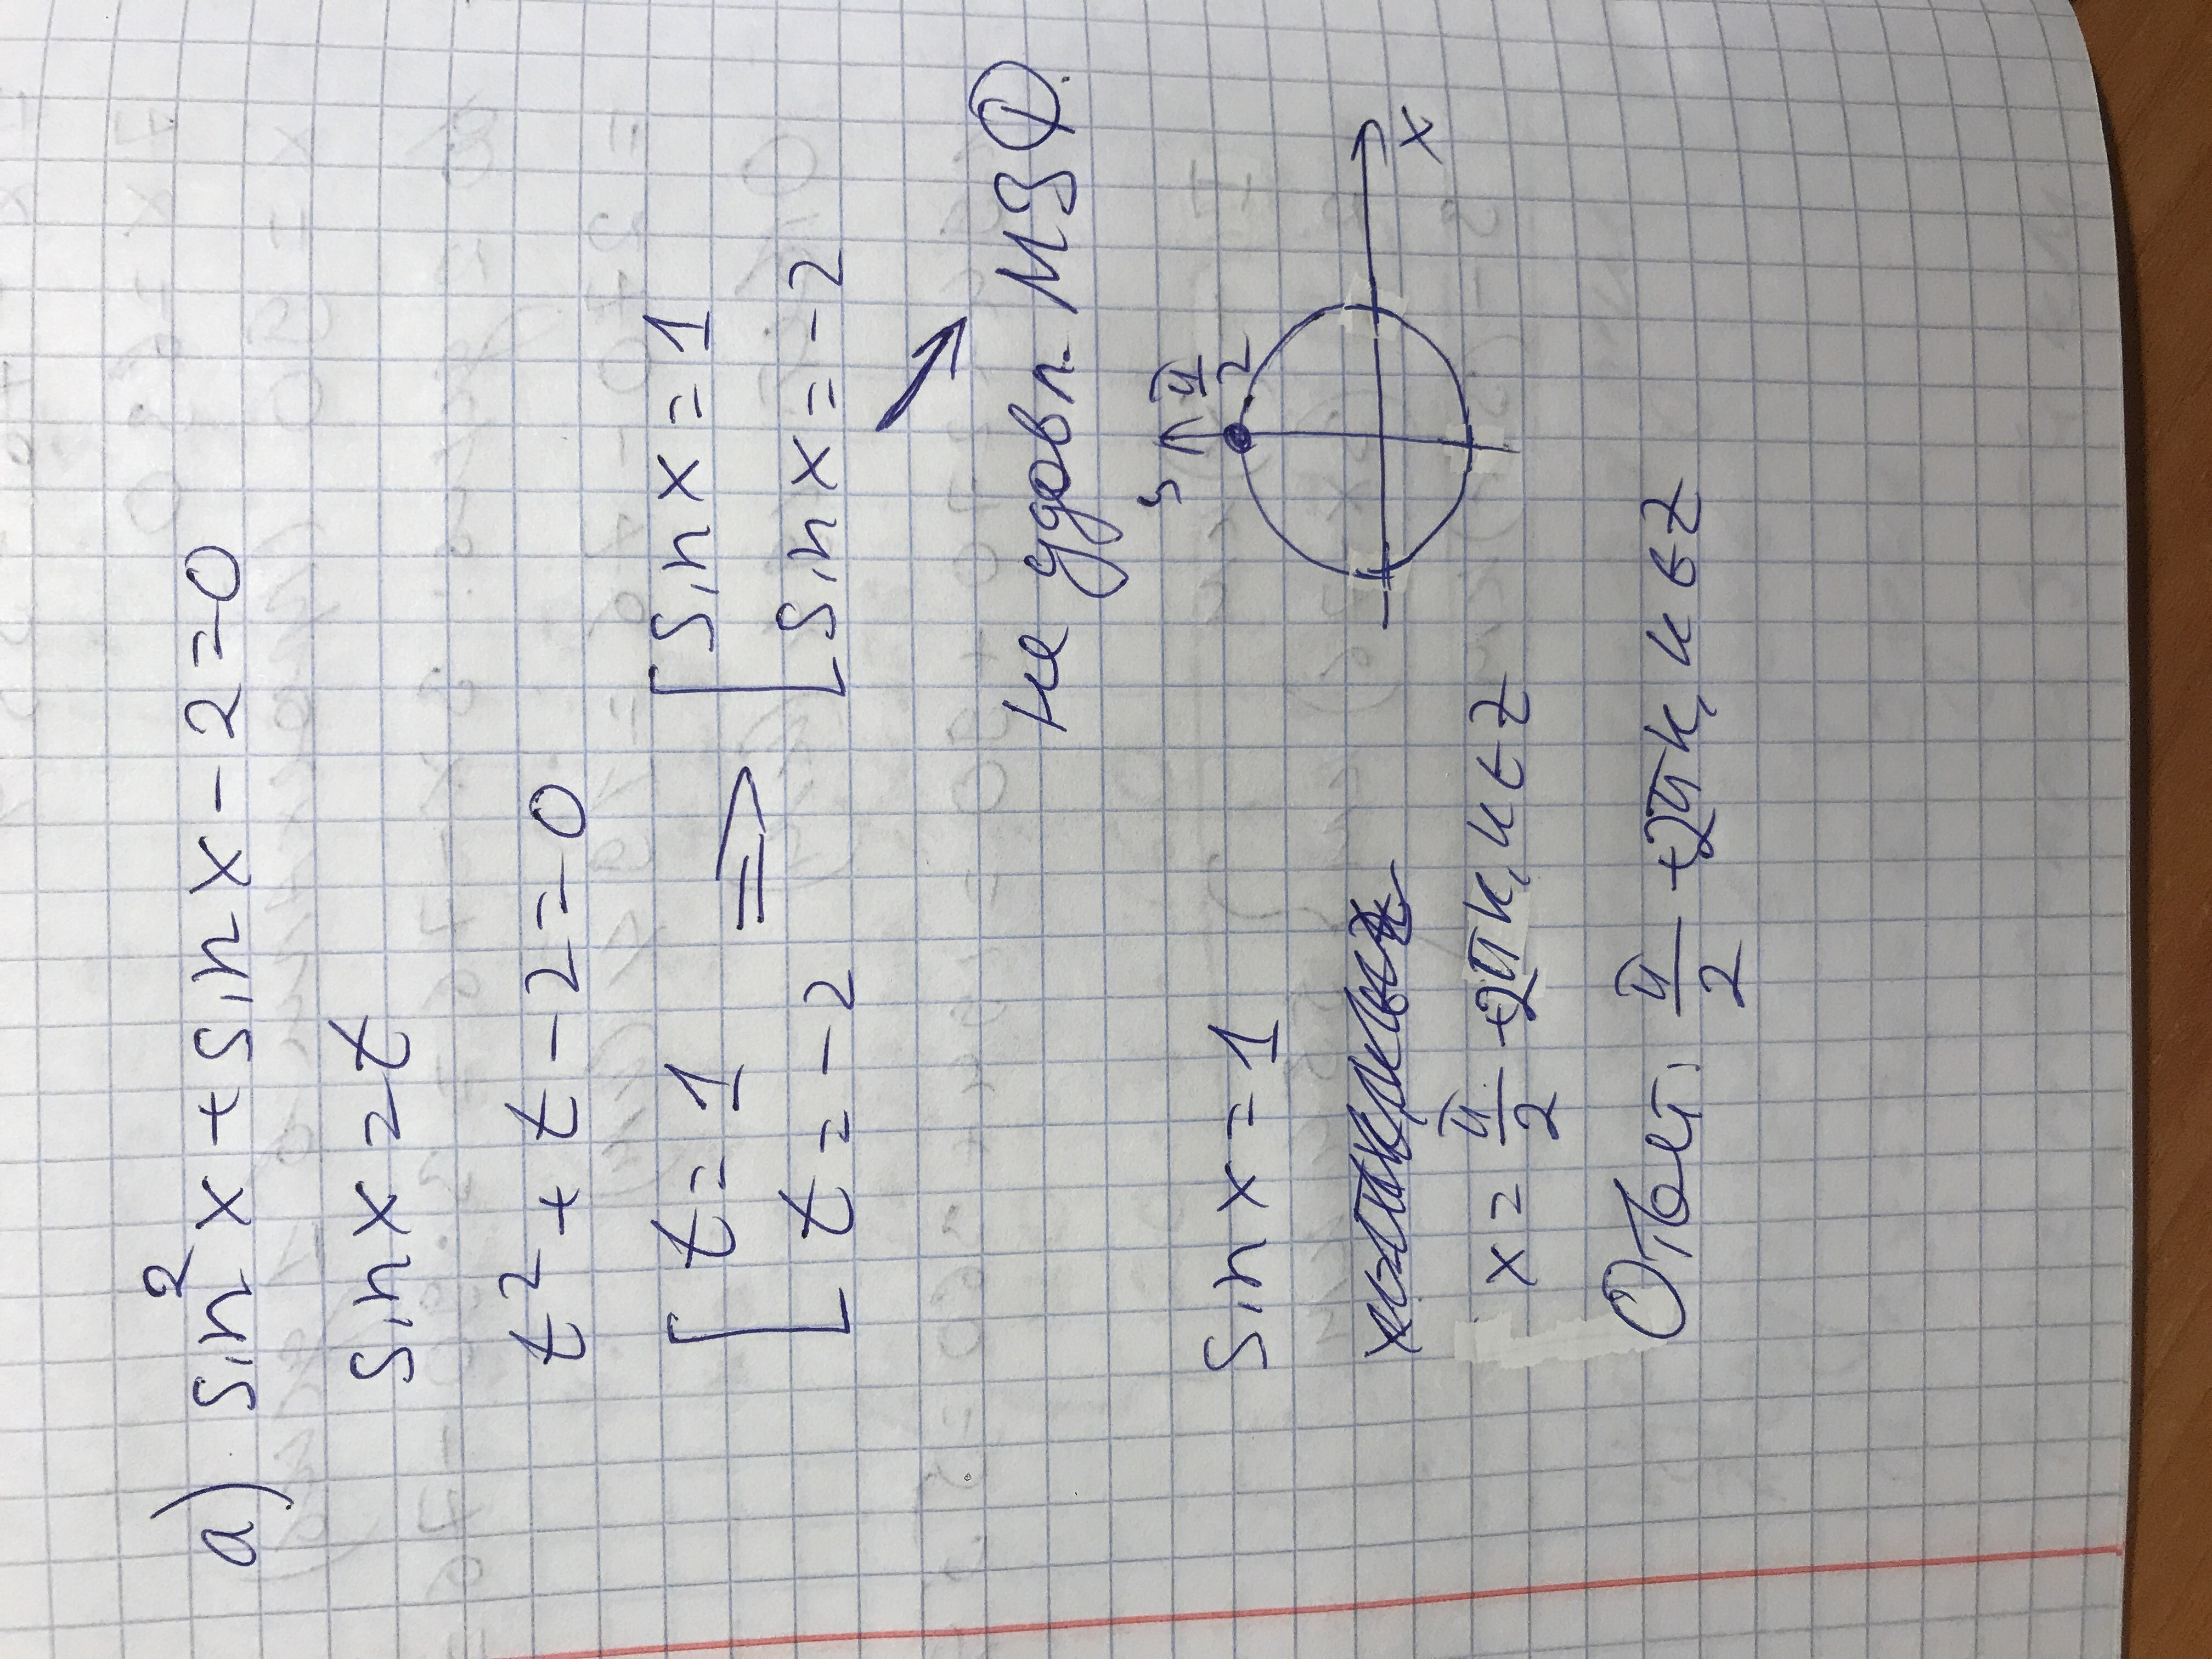 а) sin²x + sin x - 2 = 0
sin x = t
t² + t - 2 = 0
[ t = 1 ⇒ [ sin x = 1
[ t = -2 [ sin x = -2
не удовл. МЗФ.
sin x = 1
y π/2
x
x = π/2 + 2πk, k ∈ Z
Ответ: π/2 + 2πk, k ∈ Z